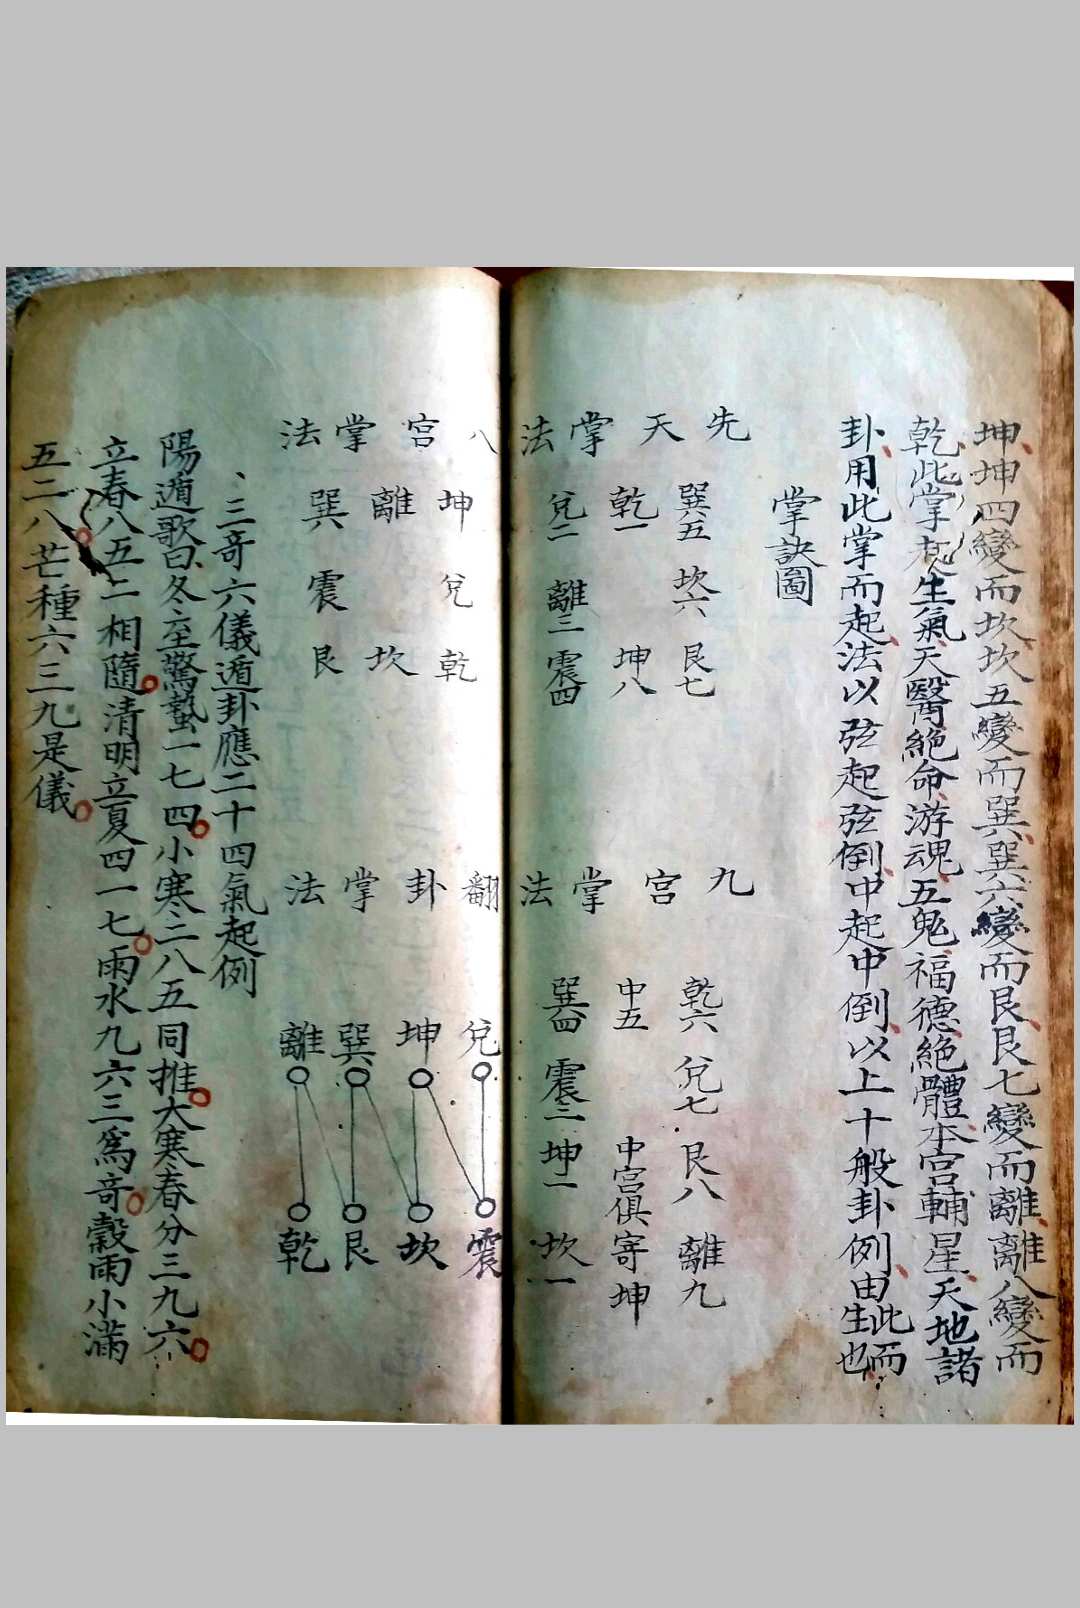 坤坤四變而坎坎五變而巽巽六變而艮艮七變而離離八變而
乾此掌起生氣天醫絕命游魂五鬼福德絕體本宮輔星天地諸
卦用此掌而起法以弦起弦倒中起中倒以上十般卦例由此而生也
掌訣圖
先天掌法
巽五 坎六 艮七
乾一 坤八
兌二 離三 震四
九宮掌法
乾六 兌七 艮八 離九
中五 中宮俱寄坤
巽四 震三 坤二 坎一
八宮掌法
坤 兌 乾
離 坎
巽 震 艮
翻卦掌法
兌 坤 巽 離
震 坎 艮 乾
三奇六儀遁卦應二十四氣起例
陽遁歌曰冬至驚蟄一七四小寒二八五同推大寒春分三九六
立春八五二相隨清明立夏四一七雨水九六三為奇穀雨小滿
五二八芒種六三九是儀